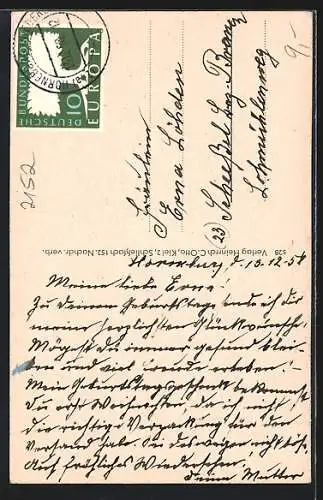 DEUTSCHE BUNDESPOST
10
EUROPA
HORNEBURG
9,-
2152
Fräulein
Erna Löhden
(23) Scheeßel Bez. Bremen
Lohmühlenweg
528 Verlag Heinrich C. Otto, Kiel 2, Schließfach 152. Nachdr. verb.
Horneburg, d. 13.12.57
Meine liebe Erna!
Zu Deinem Geburtstage sende ich Dir
meine herzlichsten Glückwünsche.
Mögest Du immer gesund blei-
ben und viel Freude erleben! -
Mein Geburtstagsgeschenk bekommst
Du erst Weihnachten, da ich nicht
die richtige Verpackung für den
Versand habe. Sei deswegen nicht böse.
Auf fröhliches Wiedersehen!
Deine Mutter